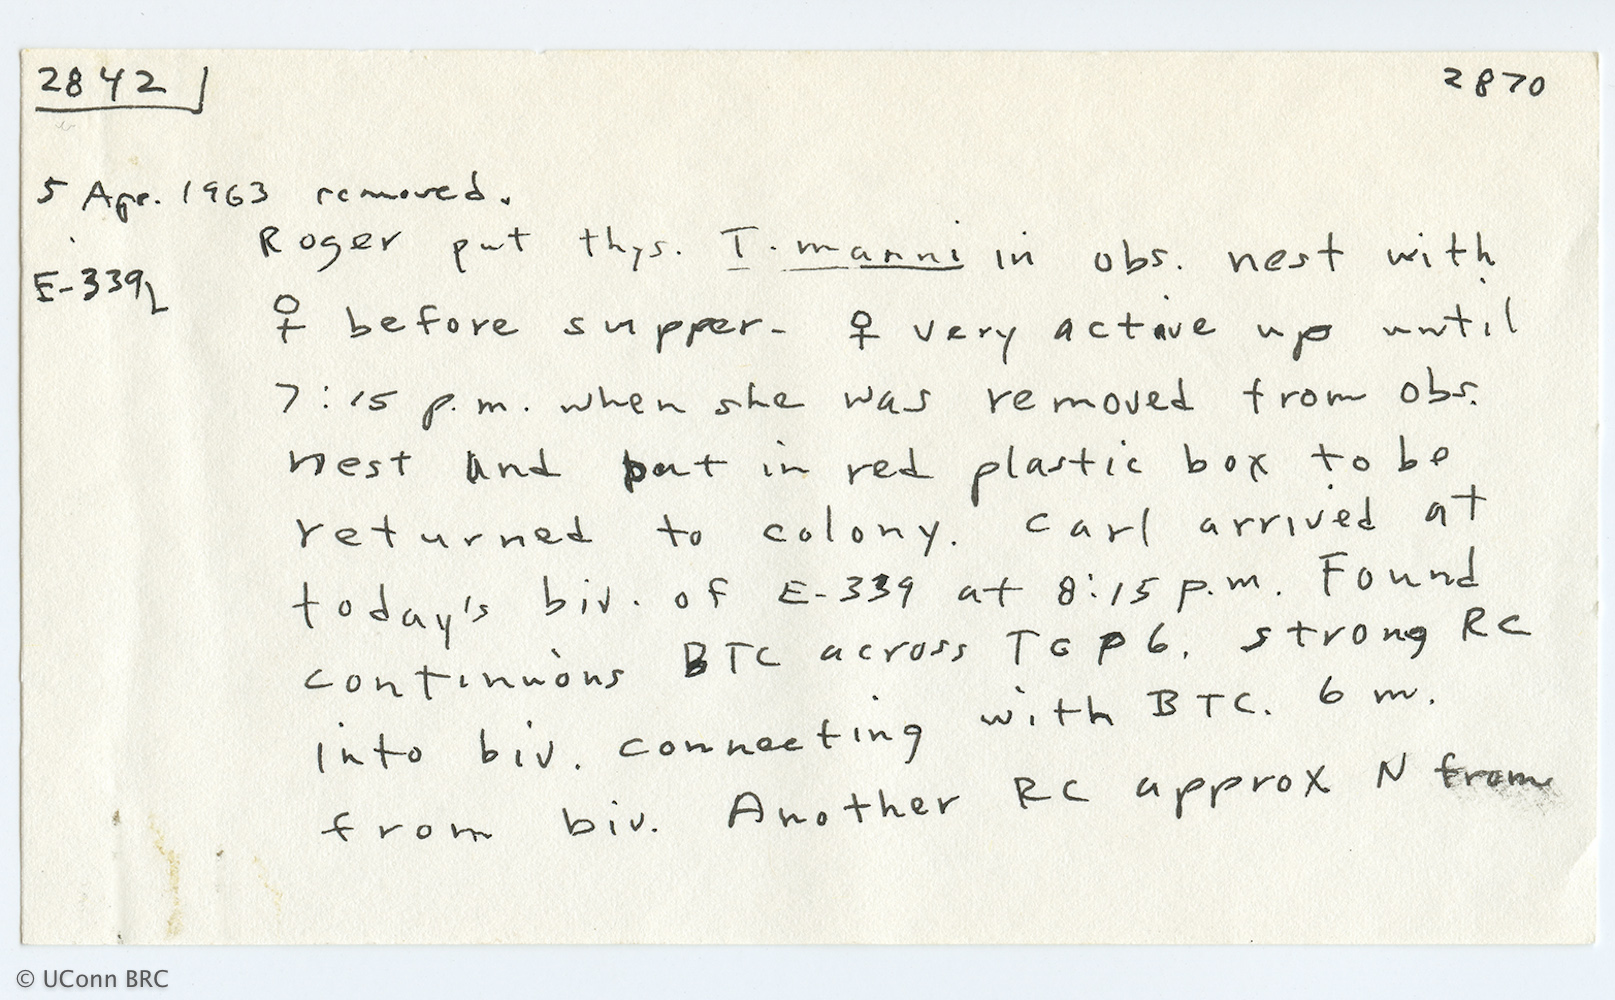 2842 2870
5 Apr. 1963 removed.
Roger put thys. T. manni in obs. nest with
E-339
♀ before supper- ♀ very active up until
7:15 p.m. when she was removed from obs.
nest and put in red plastic box to be
returned to colony. Carl arrived at
today's biv. of E-339 at 8:15 p.m. Found
continuous BTC across TGP6. strong RC
into biv. connecting with BTC. 6 m.
from biv. Another RC approx N from
© UConn BRC